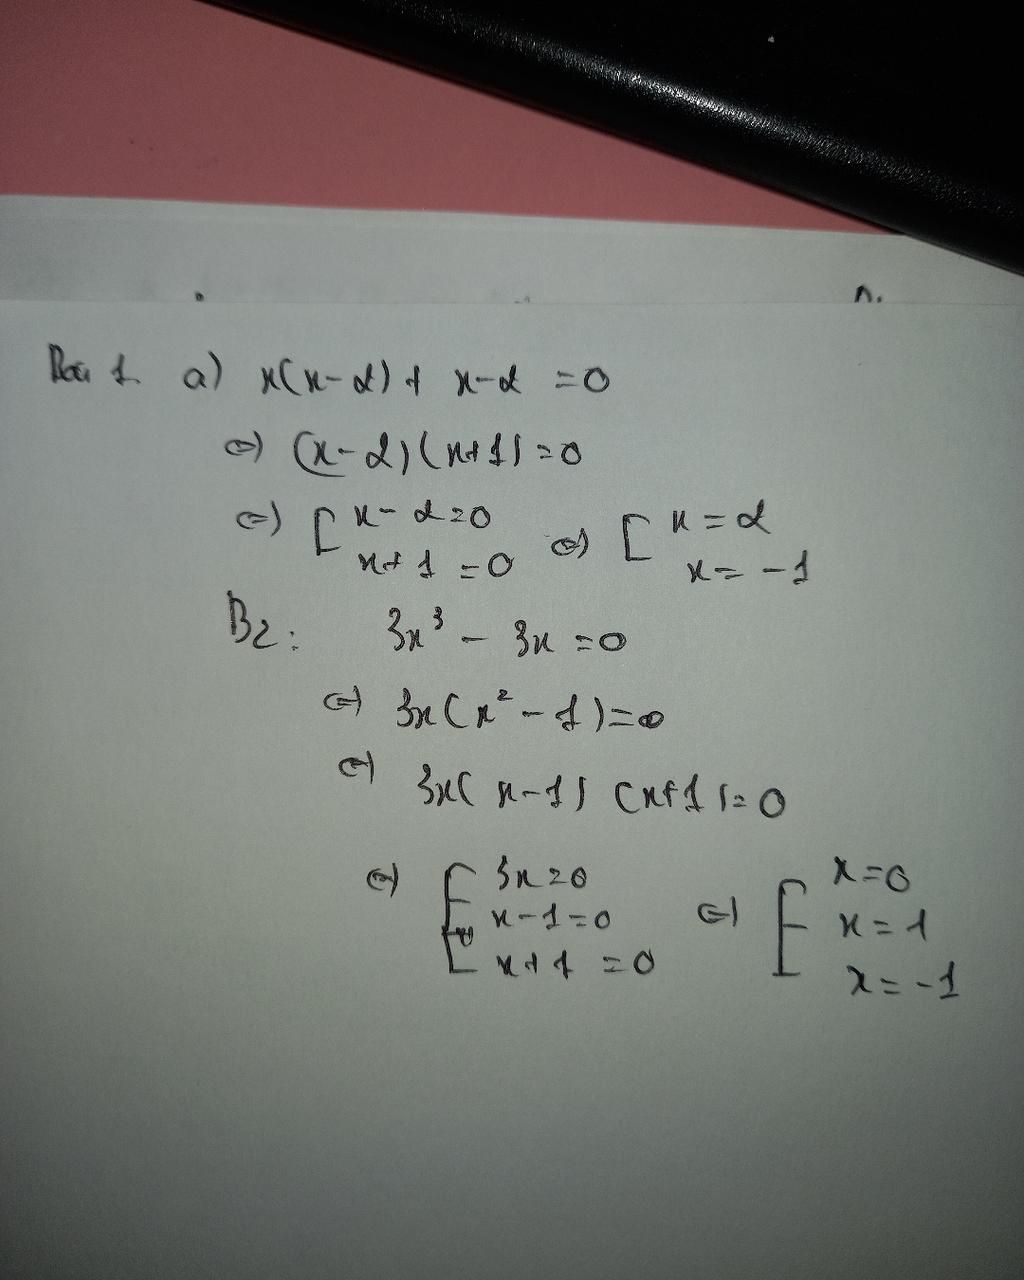 Bài 1. a) x(x-2) + x-2 =0
⇔ (x-2)(x+1)=0
⇔ [ x-2=0 ⇔ [ x=2
x+1 =0 x= -1
B2: 3x³ - 3x =0
⇔ 3x(x²-1)=0
⇔ 3x( x-1) (x+1)=0
⇔ [ 3x=0 ⇔ [ x=0
x-1=0 x=1
x+1 =0 x=-1